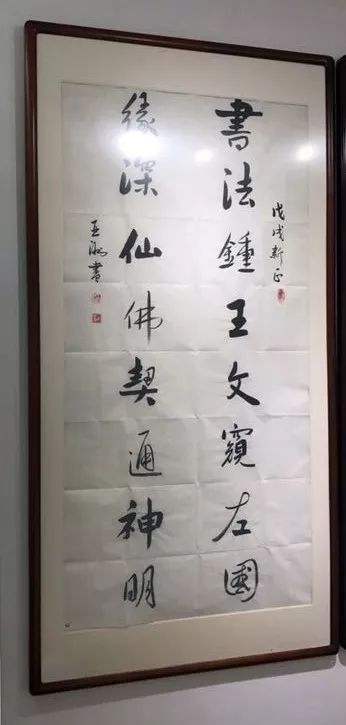 戊戌新正
書法鍾王文窺左國
緣深仙佛契通神明
書